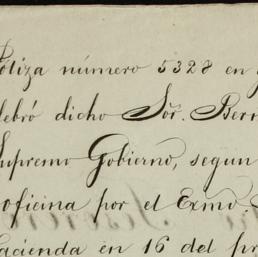 Poliza número 5328 en
lebró dicho Sor. Bern
Supremo Gobierno, segun
oficina por el Exmo.
acienda en 16 del pr